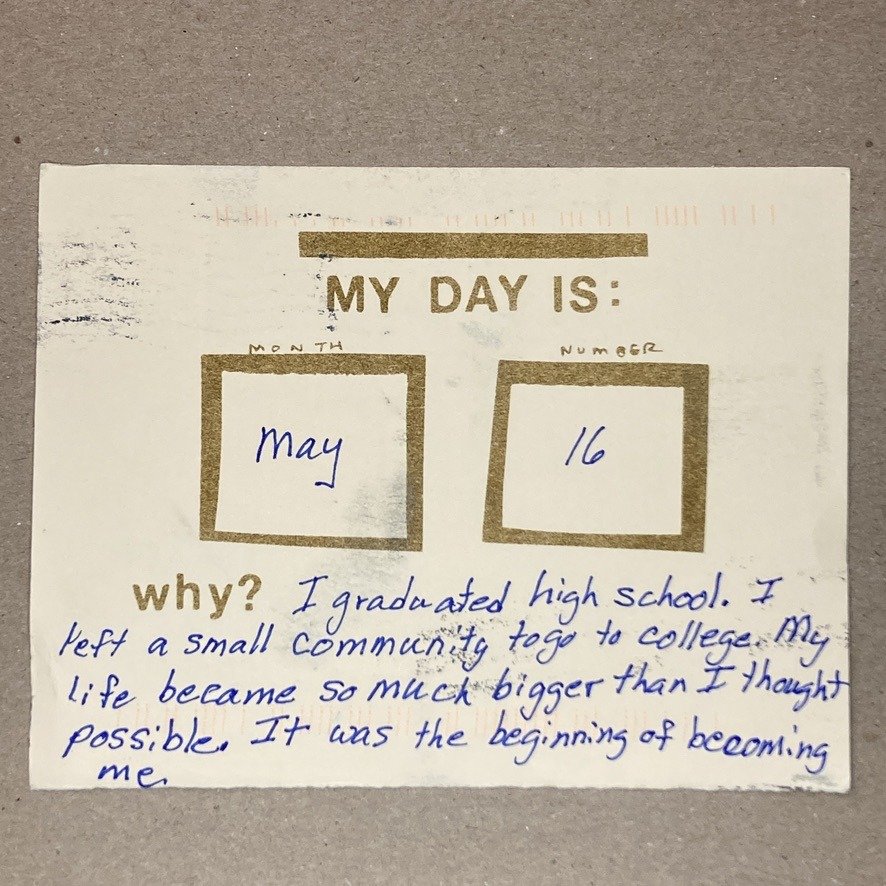 MY DAY IS:
MONTH
NUMBER
May
16
why? I graduated high school. I
left a small community to go to college. My
life became so much bigger than I thought
possible. It was the beginning of becoming
me.